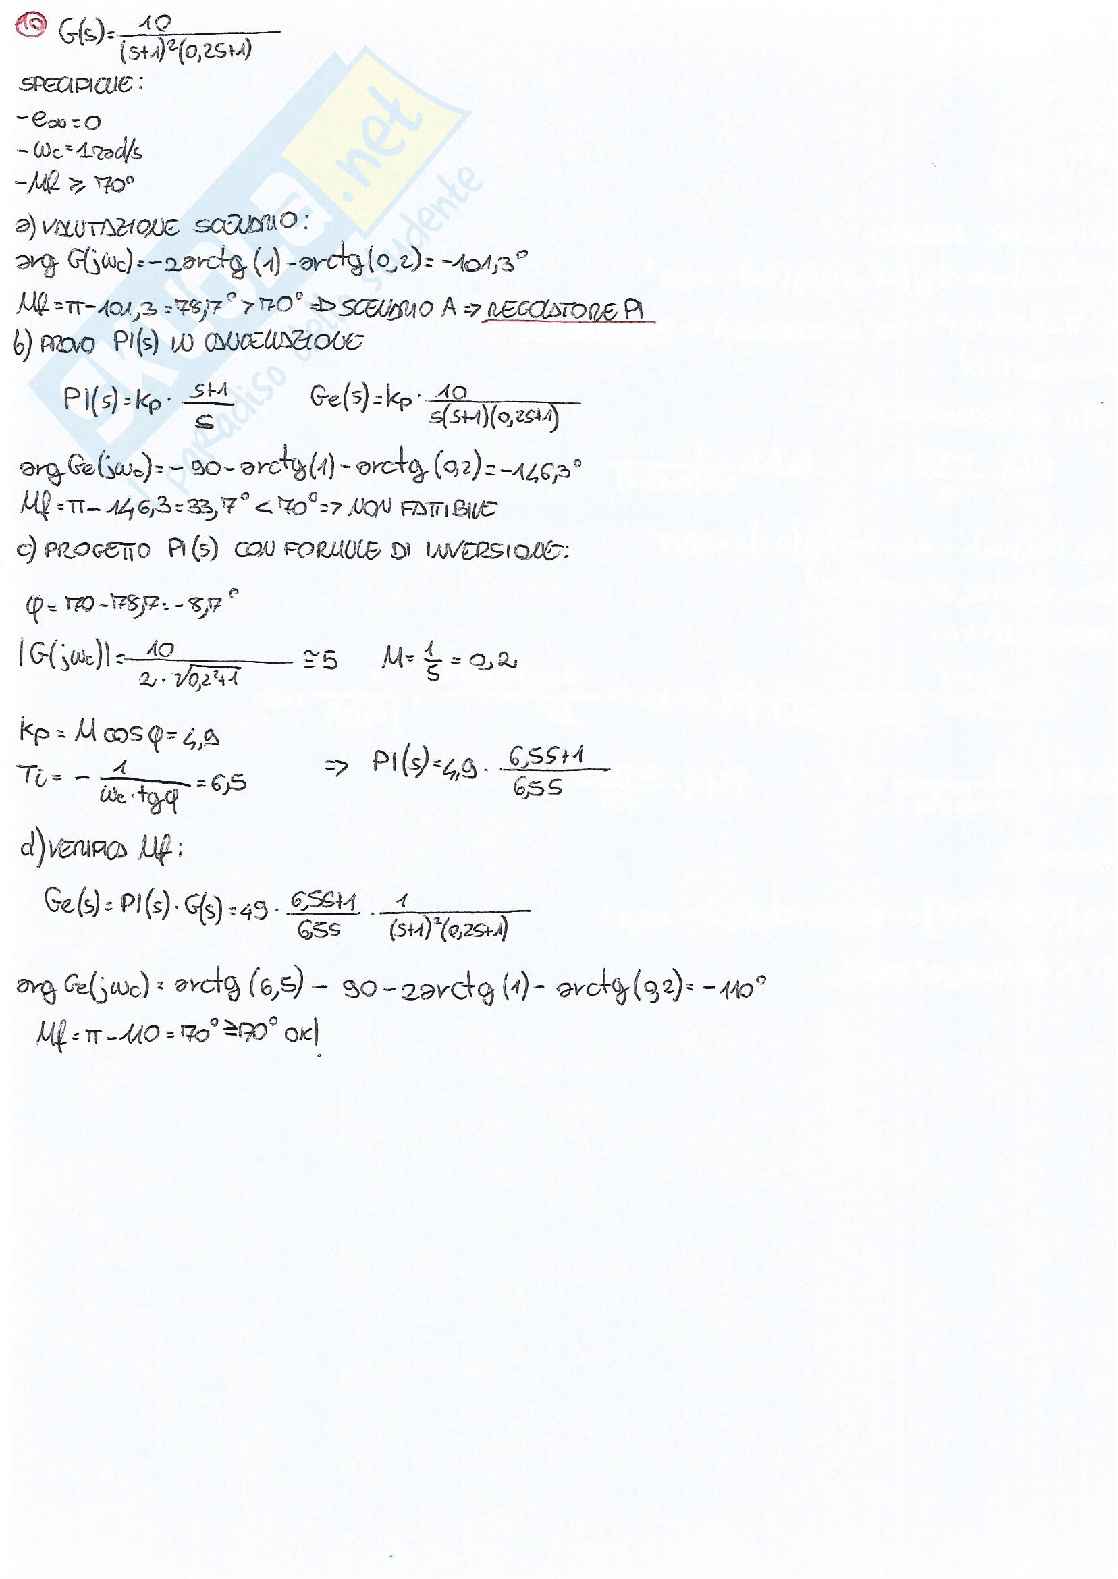 10 G(s)= 10 / (s+1)²(0,2s+1)
SPECIFICHE:
-e∞=0
-ωc=1rad/s
-Mf ≥ 70°
a) VALUTAZIONE SCENARIO:
arg G(jωc)=-2arctg(1)-arctg(0,2)=-101,3°
Mf=π-101,3=78,7°>70° => SCENARIO A => REGOLATORE PI
b) PROVO PI(s) IN CANCELLAZIONE
PI(s)=kp· s+1 / s Ge(s)=kp· 10 / s(s+1)(0,2s+1)
arg Ge(jωc)=-90-arctg(1)-arctg(0,2)=-146,3°
Mf=π-146,3=33,7°<70°=> NON FATTIBILE
c) PROGETTO PI(s) CON FORMULE DI INVERSIONE:
φ=170-178,7=-8,7°
|G(jωc)|= 10 / 2·√0,2²+1 ≅5 M= 1 / 5 =0,2
kp=M cosφ=4,9
Ti=- 1 / ωc·tgφ =6,5 => PI(s)=4,9· 6,5s+1 / 6,5s
d) VERIFICO Mf:
Ge(s)=PI(s)·G(s)=49· 6,5s+1 / 6,5s · 1 / (s+1)²(0,2s+1)
arg Ge(jωc)=arctg(6,5)-90-2arctg(1)-arctg(0,2)=-110°
Mf=π-110=70°≥70° OK!
skuola.net
il paradiso dello studente